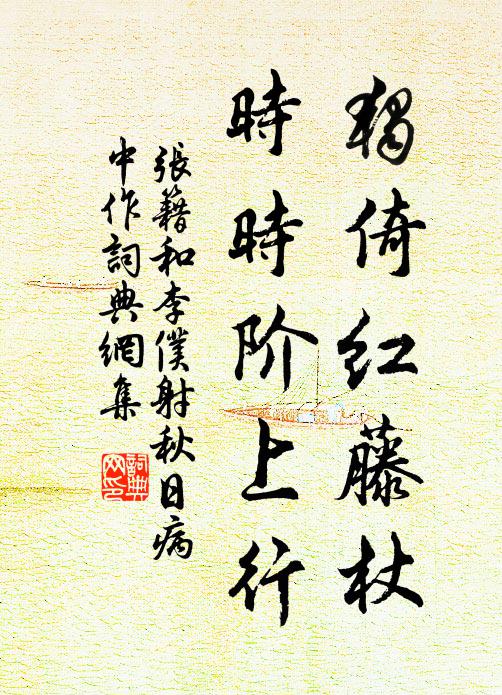 獨倚红藤杖
時時阶上行
張籍和李僕射秋日病
中作詞典網集
詞典
网印